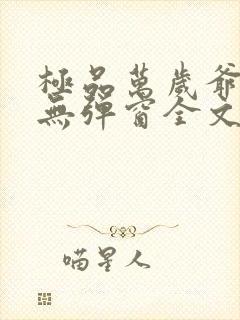 極品萬歲爺
無彈窗全文
喵星人